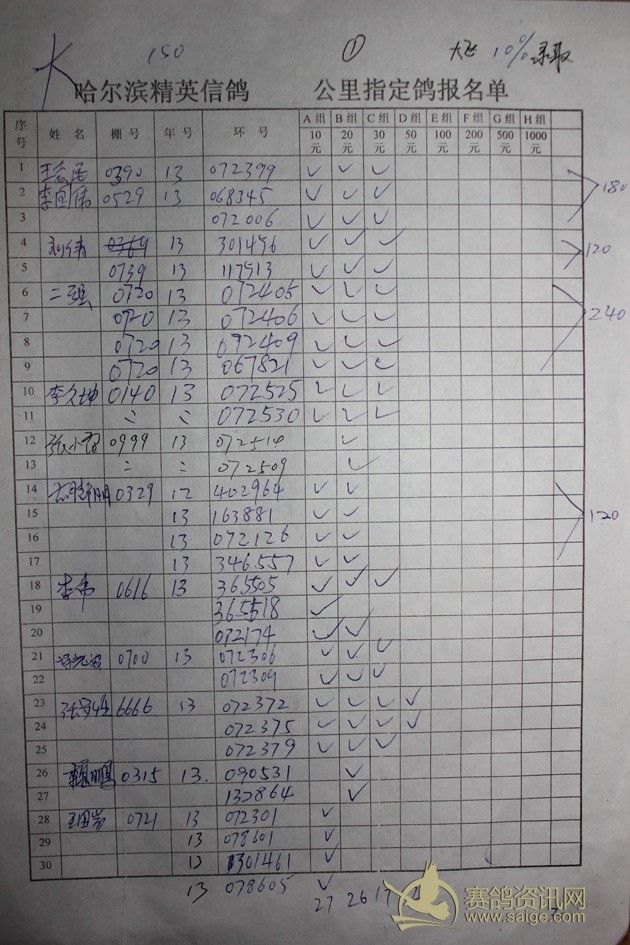 大 150 ① 大飞 10% 录取
哈尔滨精英信鸽 公里指定鸽报名单
序号 姓名 棚号 年号 环号 A组 10元 B组 20元 C组 30元 D组 50元 E组 100元 F组 200元 G组 500元 H组 1000元
1 0390 13 072399 ✓ ✓ ✓
2 李国伟 0529 13 068345 ✓ ✓ ✓ 180
3 072006 ✓ ✓ ✓
4 刘伟 13 301456 ✓ ✓ ✓ 120
5 0739 13 117513 ✓ ✓ ✓
6 二强 0720 13 072405 ✓ ✓ ✓
7 0720 13 072406 ✓ ✓ ✓ 240
8 0720 13 092409 ✓ ✓ ✓
9 0720 13 067821 ✓ ✓ ✓
10 李久坤 0140 13 072525 ✓ ✓ ✓
11 072530 ✓ ✓ ✓
12 0999 13 072514 ✓
13 072509 ✓
14 0329 12 402964 ✓ ✓
15 13 163881 ✓ ✓ 120
16 13 072126 ✓ ✓
17 13 346557 ✓ ✓
18 李伟 0616 13 365505 ✓ ✓ ✓
19 365518 ✓
20 072174 ✓ ✓
21 0700 13 072306 ✓ ✓ ✓
22 072309 ✓ ✓ ✓
23 6666 13 072372 ✓ ✓ ✓ ✓
24 072375 ✓ ✓ ✓ ✓
25 072379 ✓ ✓ ✓
26 0315 13. 090531 ✓
27 132864 ✓
28 0721 13 072301 ✓
29 13 078601 ✓
30 13 301461 ✓
13 078605 ✓
27 26 17
赛鸽资讯网
www.saige.com